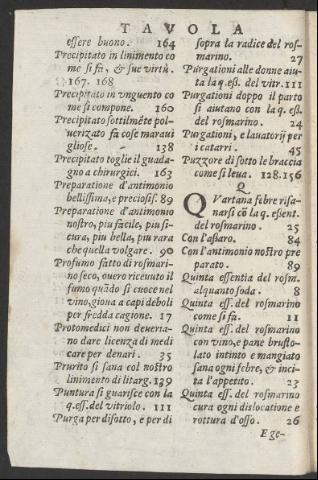 TAVOLA
essere buono. 164
Precipitato in linimento co
me si fà, & sue virtù.
167. 168
Precipitato in vnguento co
me si compone. 160
Precipitato sottilmēte pol-
uerizato fà cose maraui
gliose. 138
Precipitato toglie il guada-
gno a chirurgici. 163
Preparatione d'antimonio
bellissima, e preciosis. 89
Preparatione d'antimonio
nostro, piu facile, piu si-
cura, piu bella, piu rara
che quella volgare. 90
Profumo fatto di rosmari-
no seco, ouero riceuuto il
fumo quādo si cuoce nel
vino, gioua a capi deboli
per fredda cagione. 17
Protomedici non deueria-
no dare licenza di medi
care per denari. 35
Prurito si sana col nostro
linimento di litarg. 139
Puntura si guarisce con la
q.ess. del vitriolo. 111
Purga per disotto, e per di
sopra la radice del ros-
marino. 27
Purgationi alle donne aiu-
ta la q.ess. del vitr. 111
Purgationi doppo il parto
si aiutano con la q. ess.
del rosmarino. 24
Purgationi, e lauatorij per
i catarri. 45
Puzzore di sotto le braccia
come si leua. 128. 156
Q
QVartana febre risa-
narsi cō la q. essent.
del rosmarino. 25
Con l'asaro. 84
Con l'antimonio nostro pre
parato. 89
Quinta essentia del rosm.
alquanto soda. 8
Quinta ess. del rosmarino
come si fà. 11
Quinta ess. del rosmarino
con vino, e pane brusto-
lato intinto e mangiato
sana ogni febre, & inci-
ta l'appetito. 23
Quinta ess. del rosmarino
cura ogni dislocatione e
rottura d'osso. 26
Ege-